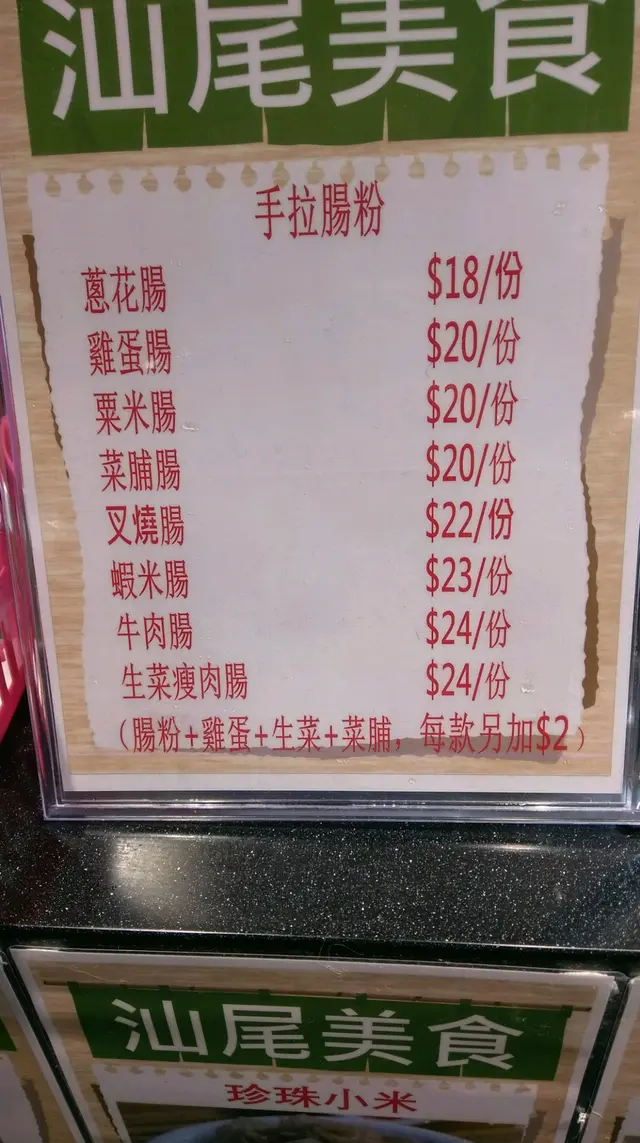 汕尾美食
手拉腸粉
蔥花腸 $18/份
雞蛋腸 $20/份
粟米腸 $20/份
菜脯腸 $20/份
叉燒腸 $22/份
蝦米腸 $23/份
牛肉腸 $24/份
生菜瘦肉腸 $24/份
（腸粉+雞蛋+生菜+菜脯，每款另加$2）
汕尾美食
珍珠小米